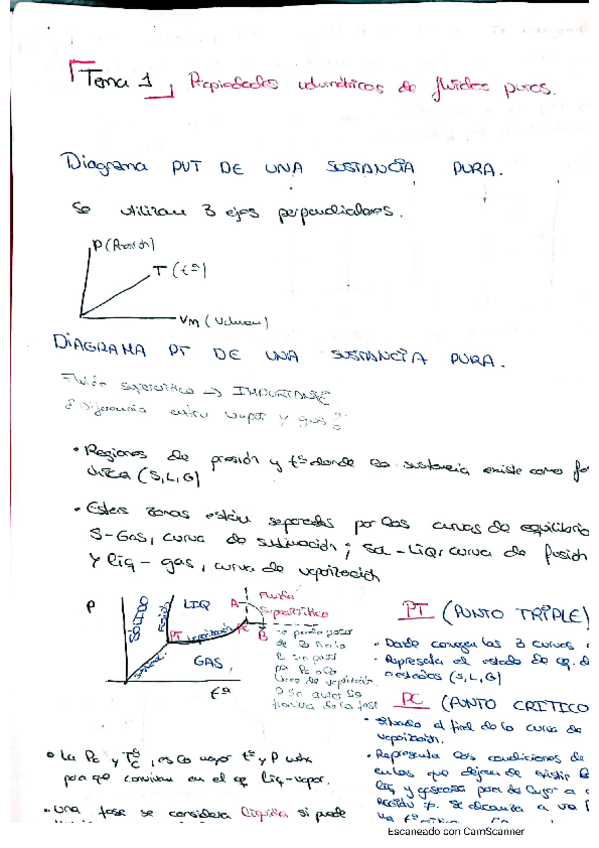 Tema 1, Propiedades volumétricas de fluidos puros.
Diagrama PVT DE UNA SUSTANCIA PURA.
Se utilizan 3 ejes perpendiculares.
P (Presión)
T (tª)
Vm (Volumen)
DIAGRAMA PT DE UNA SUSTANCIA PURA.
supercrítico → IMPORTANTE
¿Diferencia entre vapor y gas?
• Regiones de presión y tª donde la sustancia existe como
única (S, L, G)
• Estas zonas están separadas por las curvas de equilibrio
S-Gas, curva de sublimación; Sol-Liq, curva de fusión
y liq-gas, curva de vaporización
P
SOLIDO
Fusión
LIQ
A
Fluido
Supercrítico
PT
vaporización
PC
B
GAS,
tª
se puede pasar
de
sin pasar
por
línea de vaporización
PT (PUNTO TRIPLE)
• Donde convergen las 3 curvas
• Representa el estado de eq. de
estados (S, L, G)
PC (PUNTO CRITICO
• Situado al final de la curva de
vaporización.
• Representa las condiciones de
en las que dejan de existir
liq y gaseosa para dar lugar a
Se alcanza a una
una
• La Pc y Tc, es la mayor tª y P
para que convivan en el eq liq-vapor.
• una fase se considera líquida si puede
Escaneado con CamScanner